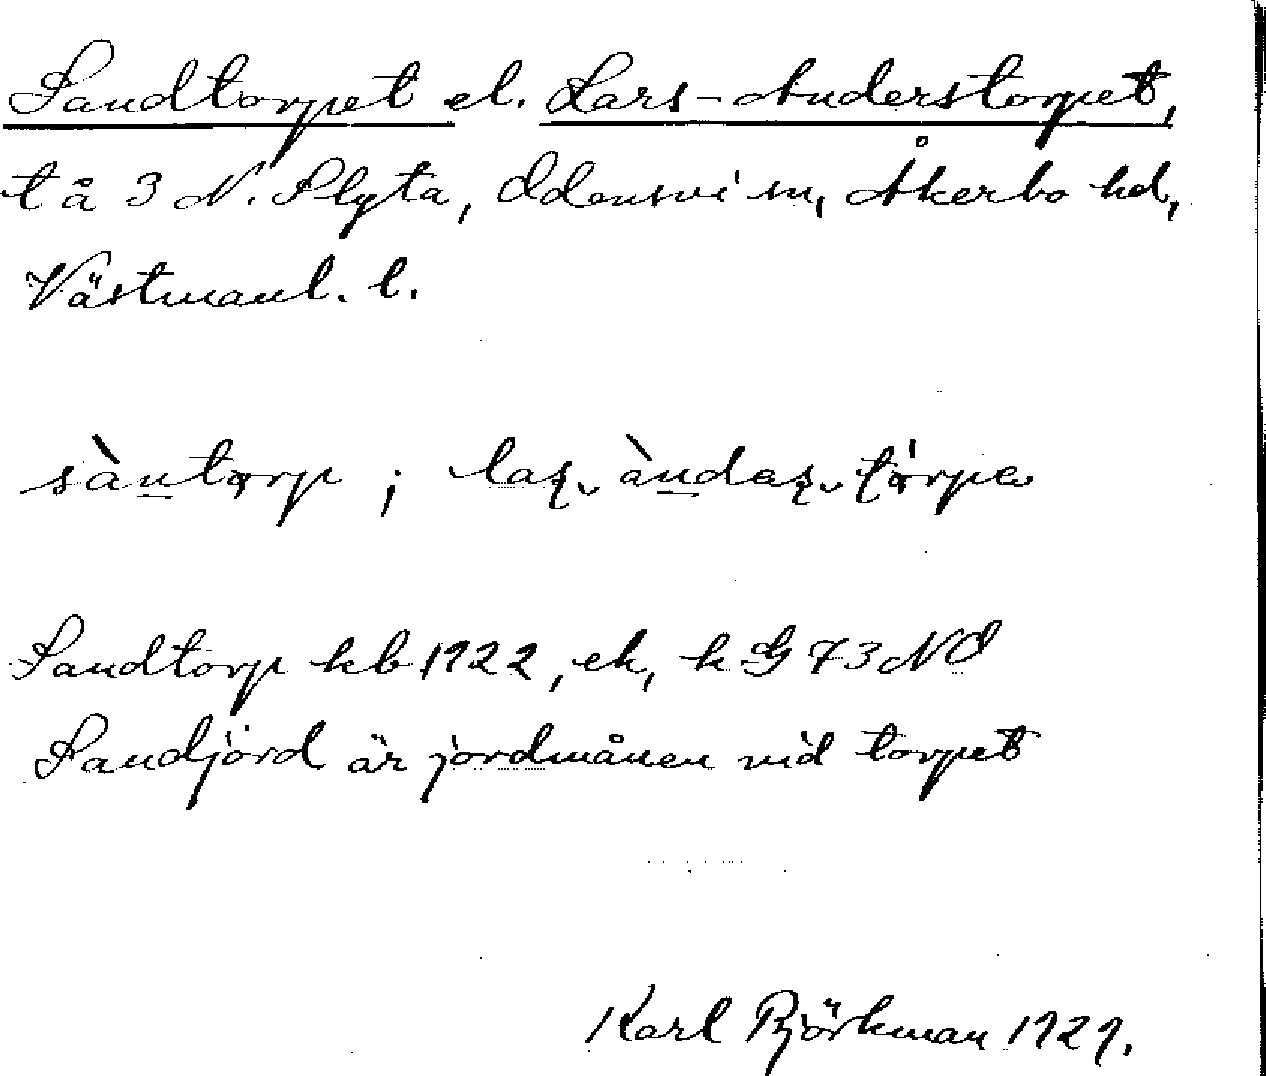 Sandtorpet el. Lars-Anderstorpet,
t å 3 N. Slyta, Odensvi sn, Åkerbo hd,
Västmanl. l.
sàntorp ; las ̮ àndas ̮ tórpe
Sandtorp kb 1922, ek, k G 73 NO
Sandjord är jordmånen vid torpet
Karl Björkman 1929.